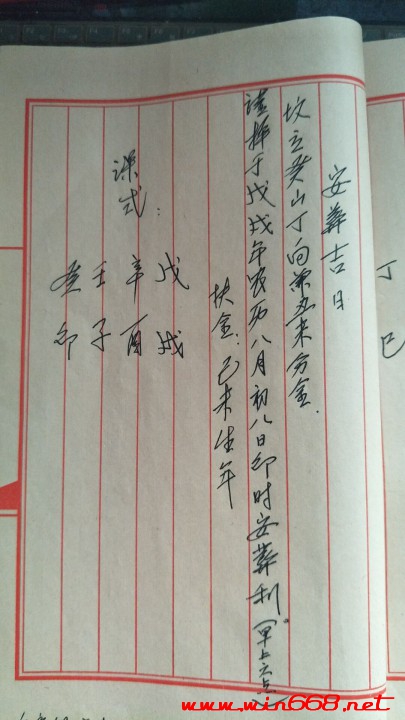 丁巳
安葬吉日
坟立癸山丁向兼丑未分金.
谨择于戊戌年农历八月初八日卯时安葬利。(早上六点)
扶金:己未生年
课式:
戊戌
辛酉
壬子
癸卯
www.win668.net